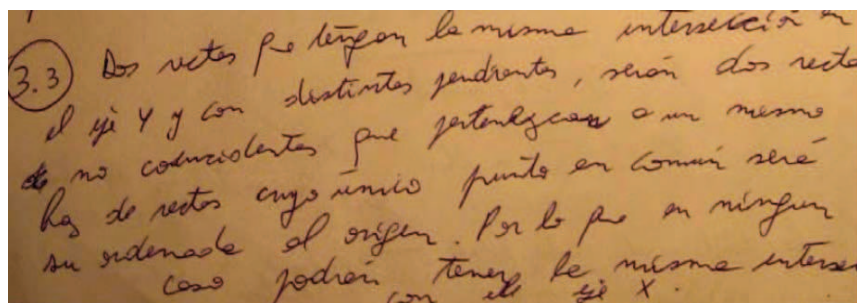 3.3) Dos rectas que tengan la misma intersección en
el eje Y y con distintas pendientes, serán dos recta
no coincidentes que pertenezcan a un mismo
haz de rectas cuyo único punto en común será
su ordenada al origen. Por lo que en ningun
caso podrán tener la misma interse
con el eje X.